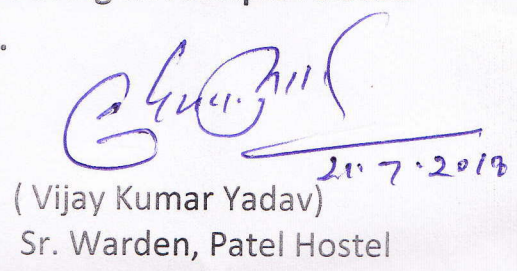 21.7.2018
( Vijay Kumar Yadav)
Sr. Warden, Patel Hostel